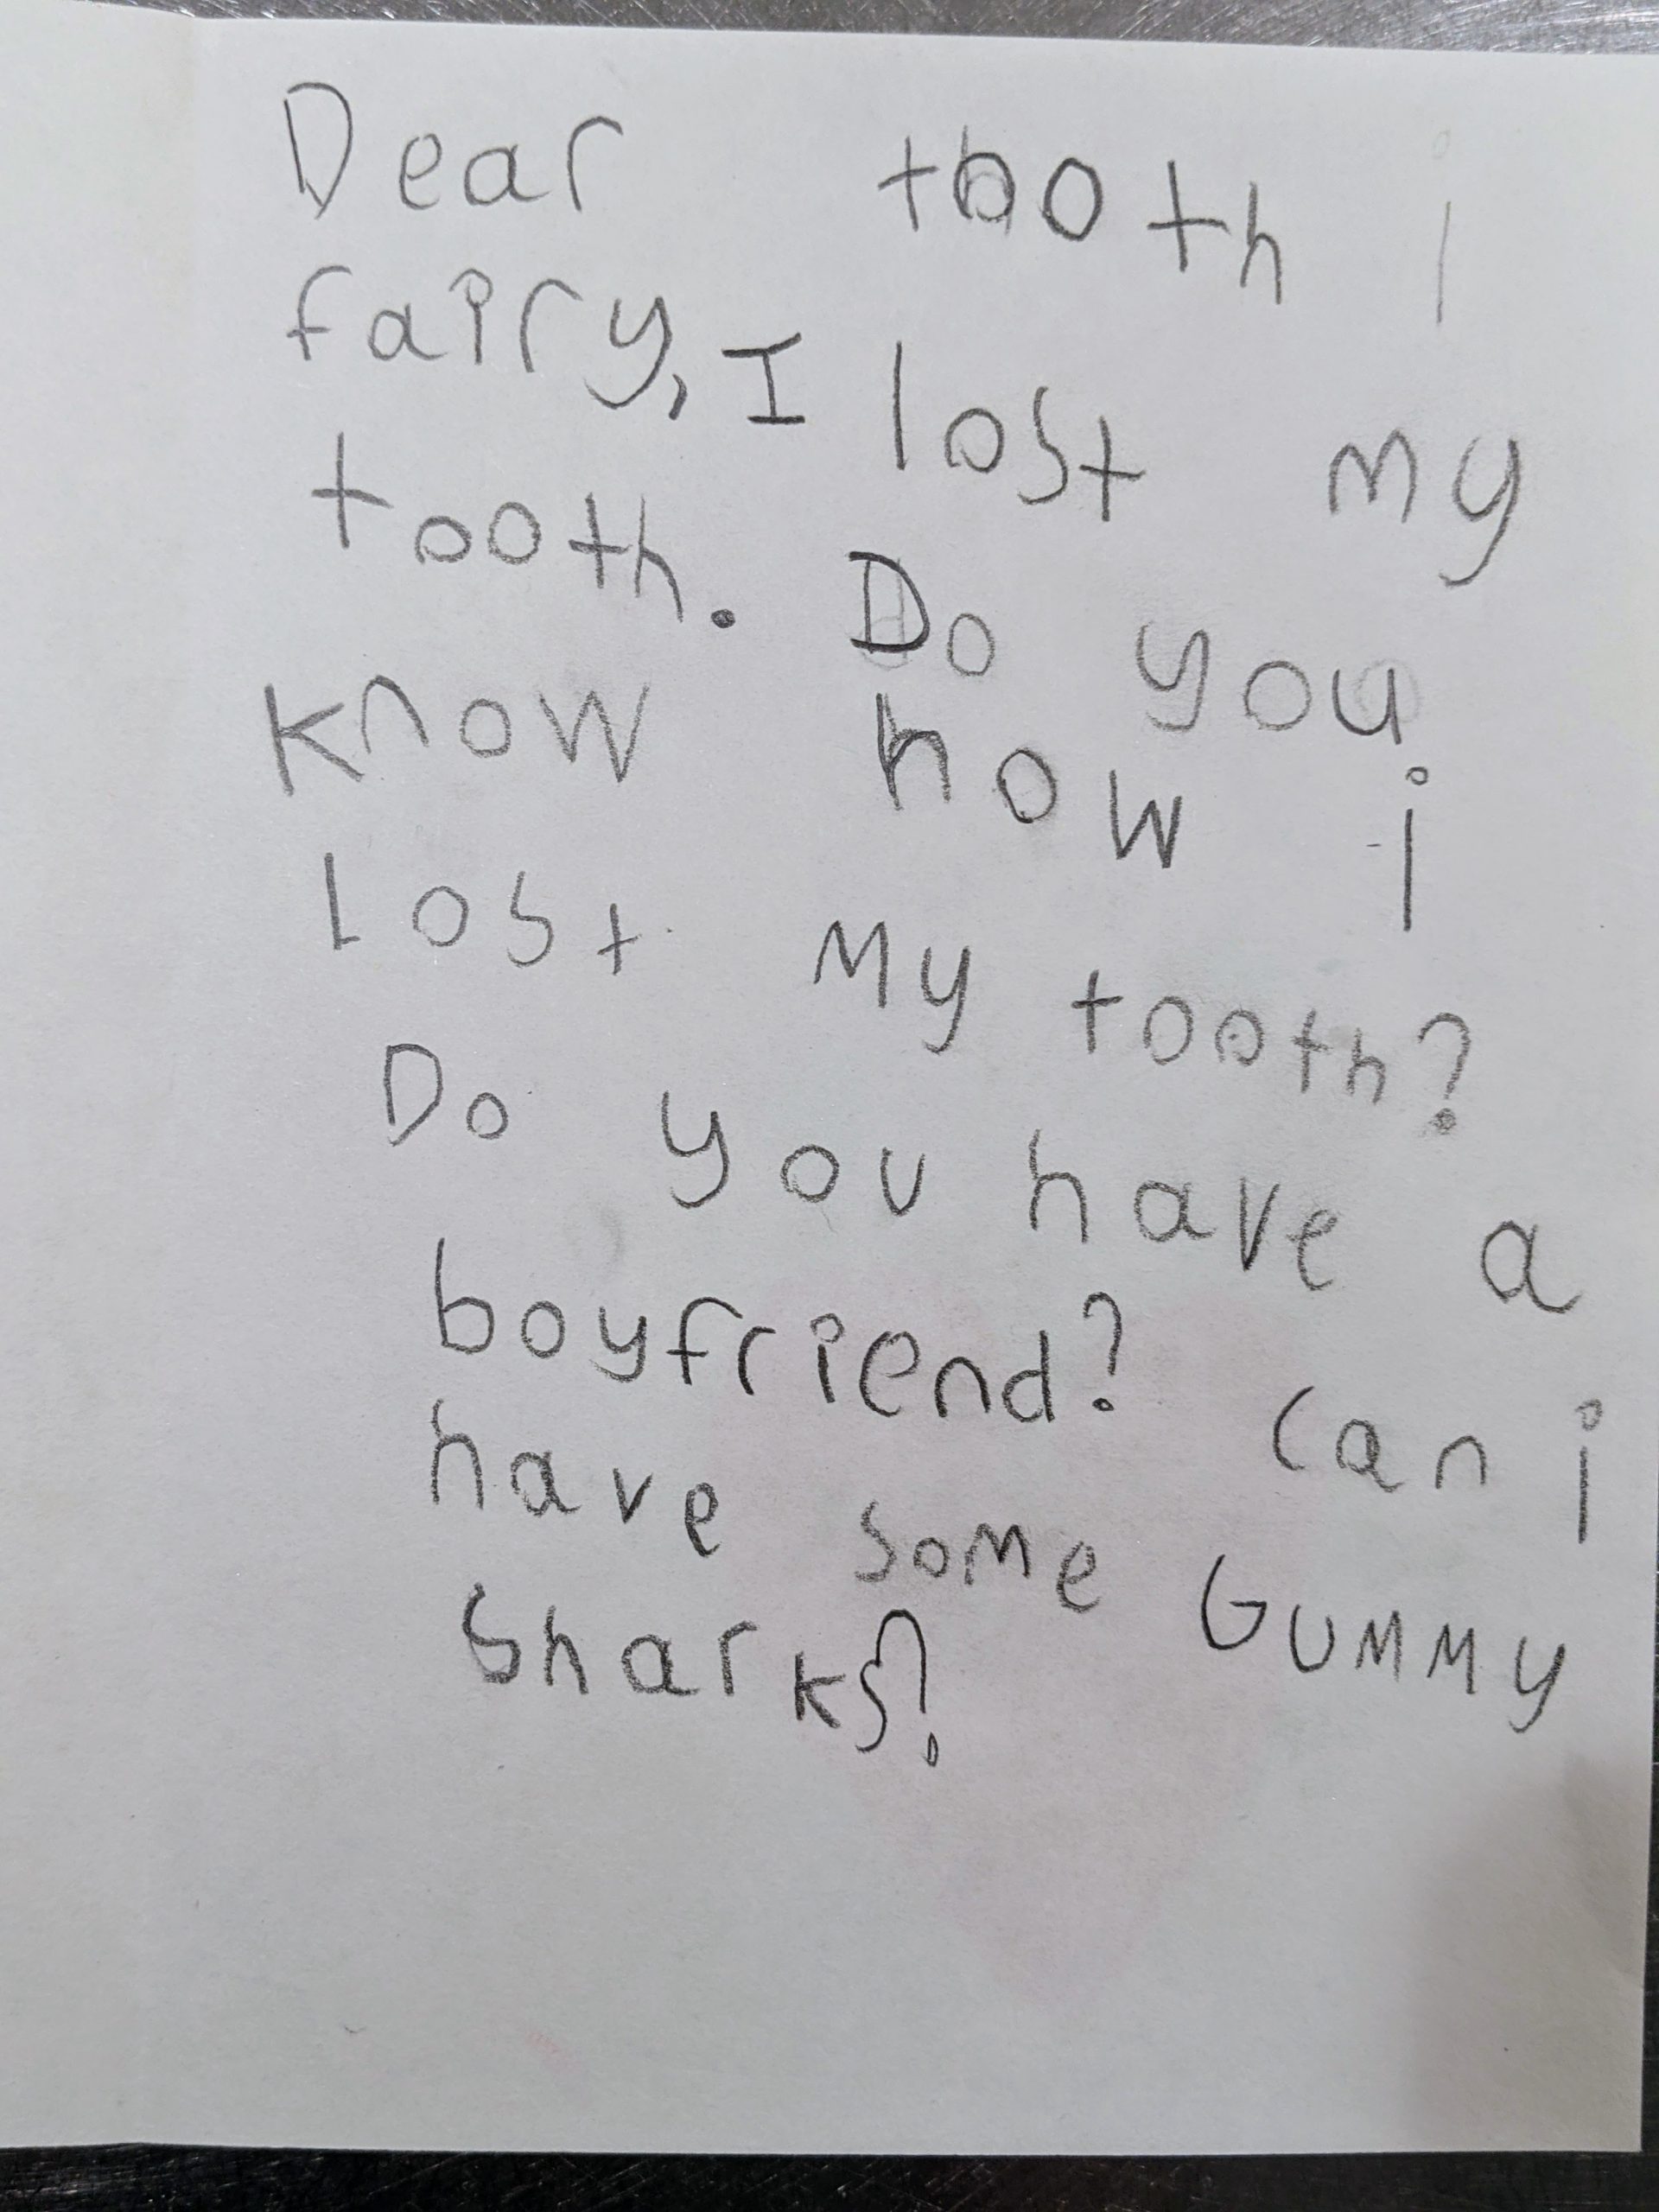 Dear tooth i
fairy, I lost my
tooth. Do you
know how i
lost my tooth?
Do you have a
boyfriend? Can i
have some Gummy
Sharks?